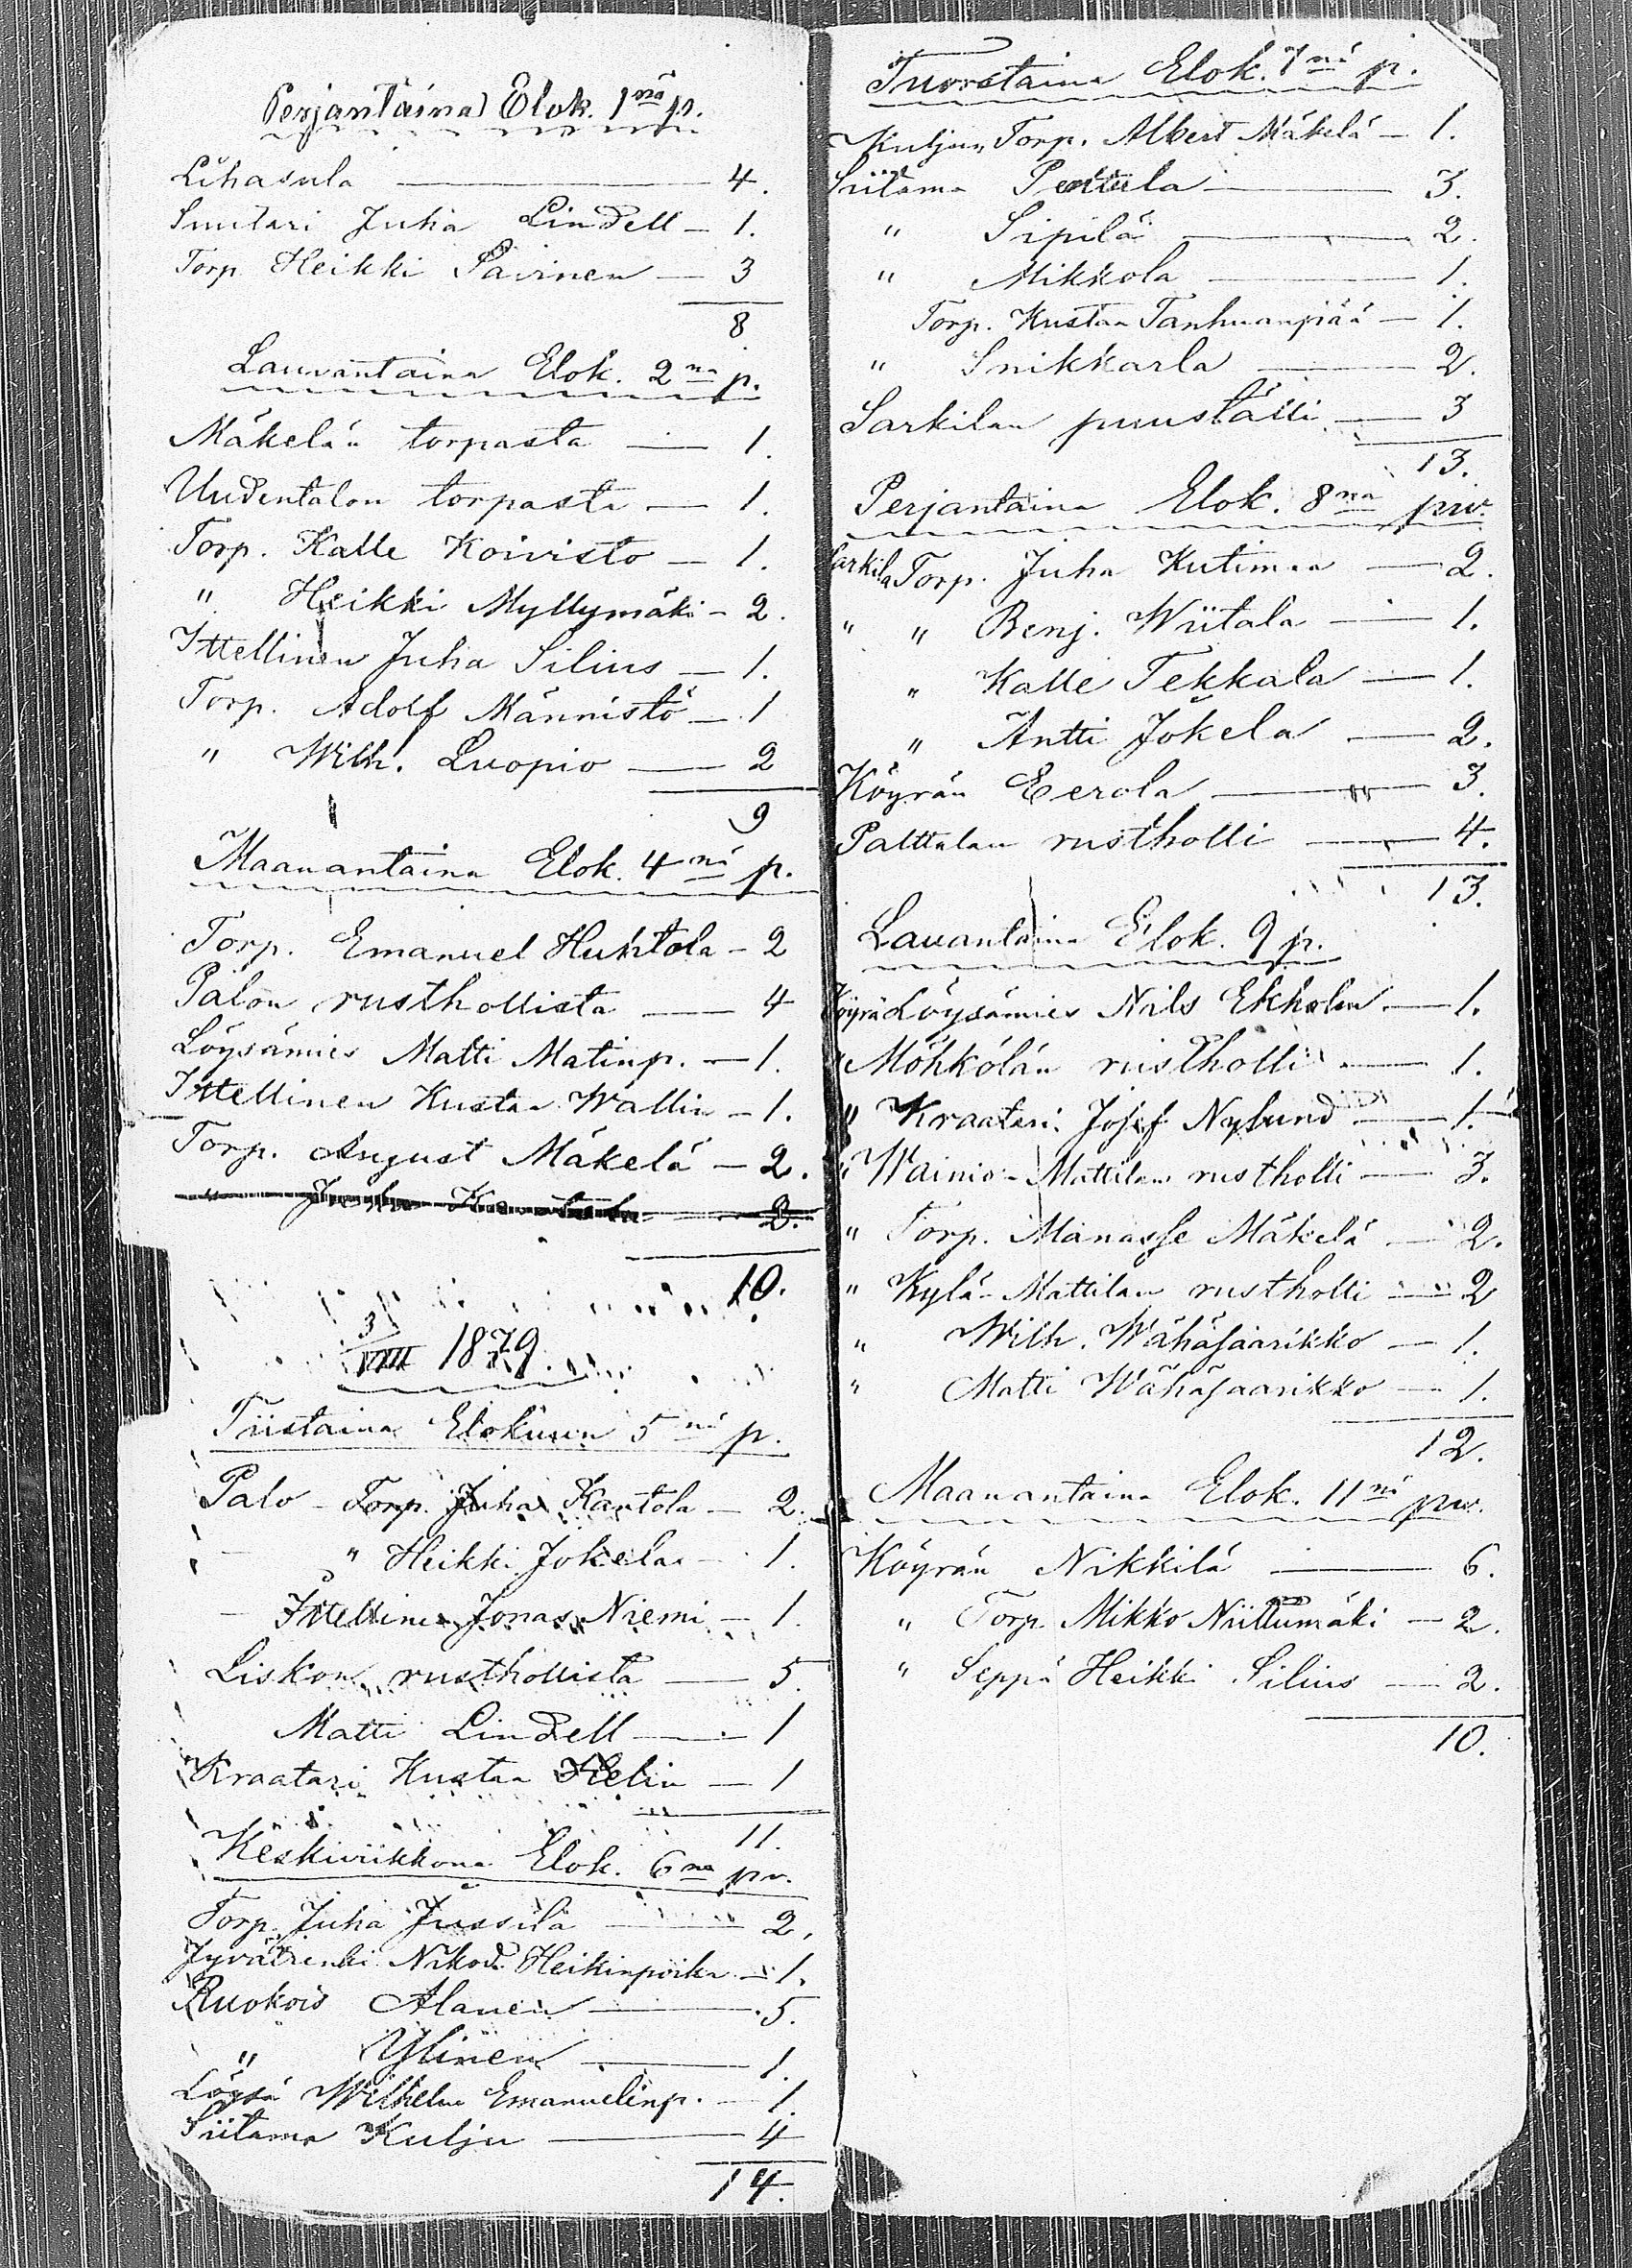 Perjantaina Elok. 1nä p.
Lihasula — 4.
Suutari Juha Lindell — 1.
Torp. Heikki Päivinen — 3
8
Lauvantaina Elok. 2na p.
Mäkelän torpasta — 1.
Uudentalon torpasta — 1.
Torp. Kalle Koivisto — 1.
" Heikki Myllymäki — 2.
Ittellinen Juha Silius — 1.
Torp. Adolf Männistö — 1
" Wilh. Luopio — 2
9
Maanantaina Elok. 4nä p.
Torp. Emanuel Huhtola — 2
Palon rusthollista — 4
Löysämies Matti Matinp. — 1.
Ittellinen Kustaa Wallin — 1.
Torp. August Mäkelä — 2.
" Juha Kantola — 2.
10.
3/VIII 1879.
Tiistaina Elokuun 5nä p.
Palo - Torp. Juha Kantola — 2.
" Heikki Jokela — 1.
- Ittellinen Jonas Niemi — 1.
Liskon rusthollista — 5.
Matti Lindell — 1
Kraatari Kustaa Helin — 1
11.
Keskiviikkona Elok. 6na pv.
Torp. Juha Jussila — 2.
Jyvärenki Nikod. Heikinpoika — 1.
Ruokois Alanen — 5.
" Ylinen — 1.
Löysä Wilhelm Emanuelinp. — 1.
Siitama Kulju — 4
14.
Tuorstaina Elok. 7nä p.
Kuljun Torp. Albert Mäkelä — 1.
Siitama Penttila — 3.
" Sipilä — 2.
" Mikkola — 1.
Torp. Kustaa Tanhuanpää — 1.
" Snikkarla — 2.
Sarkilan puuställi — 3
13.
Perjantaina Elok. 8na piv.
Sarkila Torp. Juha Kutimaa — 2.
" " Benj. Wiitala — 1.
" Kalle Tekkala — 1.
" Antti Jokela — 2.
Köyrän Eerola — 3.
Palttalan rustholli — 4.
13.
Lauantaina Elok. 9 p.
Köyrä Löysämies Nils Ekholm — 1.
" Möhkölän rustholli — 1.
" Kraatari Josef Nylund — 1.
" Wainio-Mattilan rustholli — 3.
" Torp. Manasse Mäkelä — 2.
" Kylä-Mattilan rustholli — 2
" Wilh. Wähäsaarikko — 1.
" Matti Wähäsaarikko — 1.
12.
Maanantaina Elok. 11nä piv.
Köyrän Nikkilä — 6.
" Torp. Mikko Niittumäki — 2.
" Seppä Heikki Silius — 2.
10.